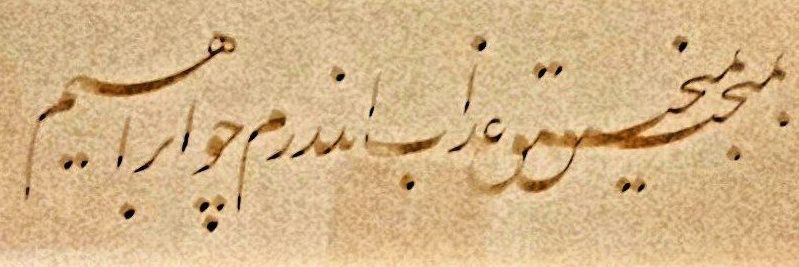 بمنجنیق عذاب اندرم چو ابراهیم